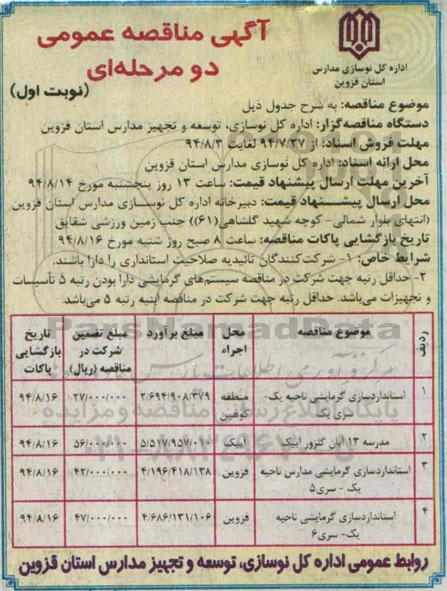 آگهی مناقصه عمومی
دو مرحله‌ای
(نوبت اول)
اداره کل نوسازی مدارس
استان قزوین
موضوع مناقصه: به شرح جدول ذیل
دستگاه مناقصه‌گزار: اداره کل نوسازی، توسعه و تجهیز مدارس استان قزوین
مهلت فروش اسناد: از ۹۴/۷/۲۷ لغایت ۹۴/۸/۳
محل ارائه اسناد: اداره کل نوسازی مدارس استان قزوین
آخرین مهلت ارسال پیشنهاد قیمت: ساعت ۱۳ روز پنجشنبه مورخ ۹۴/۸/۱۴
محل ارسال پیشنهاد قیمت: دبیرخانه اداره کل نوسازی مدارس استان قزوین
(انتهای بلوار شمالی- کوچه شهید گلشاهی(۶۱)) جنب زمین ورزشی شقایق
تاریخ بازگشایی پاکات مناقصه: ساعت ۸ صبح روز شنبه مورخ ۹۴/۸/۱۶
شرایط خاص: ۱- شرکت‌کنندگان تائیدیه صلاحیت استانداری را دارا باشند.
۲-حداقل رتبه جهت شرکت در مناقصه سیستم‌های گرمایشی دارا بودن رتبه ۵ تأسیسات
و تجهیزات می‌باشد. حداقل رتبه جهت شرکت در مناقصه ابنیه رتبه ۵ می‌باشد.
ردیف | موضوع مناقصه | محل اجراء | مبلغ برآورد | مبلغ تضمین شرکت در مناقصه (ریال) | تاریخ بازگشایی پاکات
۱ | استانداردسازی گرمایشی ناحیه یک- سری یک | منطقه کوهین | ۲/۶۹۴/۹۰۸/۳۷۹ | ۲۷/۰۰۰/۰۰۰ | ۹۴/۸/۱۶
۲ | مدرسه ۱۳ آبان گلزور آبیک | آبیک | ۵/۵۱۷/۹۵۷/۰۱۰ | ۵۶/۰۰۰/۰۰۰ | ۹۴/۸/۱۶
۳ | استانداردسازی گرمایشی مدارس ناحیه یک - سری۵ | قزوین | ۴/۱۹۶/۴۱۸/۱۳۸ | ۴۲/۰۰۰/۰۰۰ | ۹۴/۸/۱۶
۴ | استانداردسازی گرمایشی ناحیه یک- سری۶ | قزوین | ۴/۶۸۶/۱۳۱/۱۰۶ | ۴۷/۰۰۰/۰۰۰ | ۹۴/۸/۱۶
روابط عمومی اداره کل نوسازی، توسعه و تجهیز مدارس استان قزوین